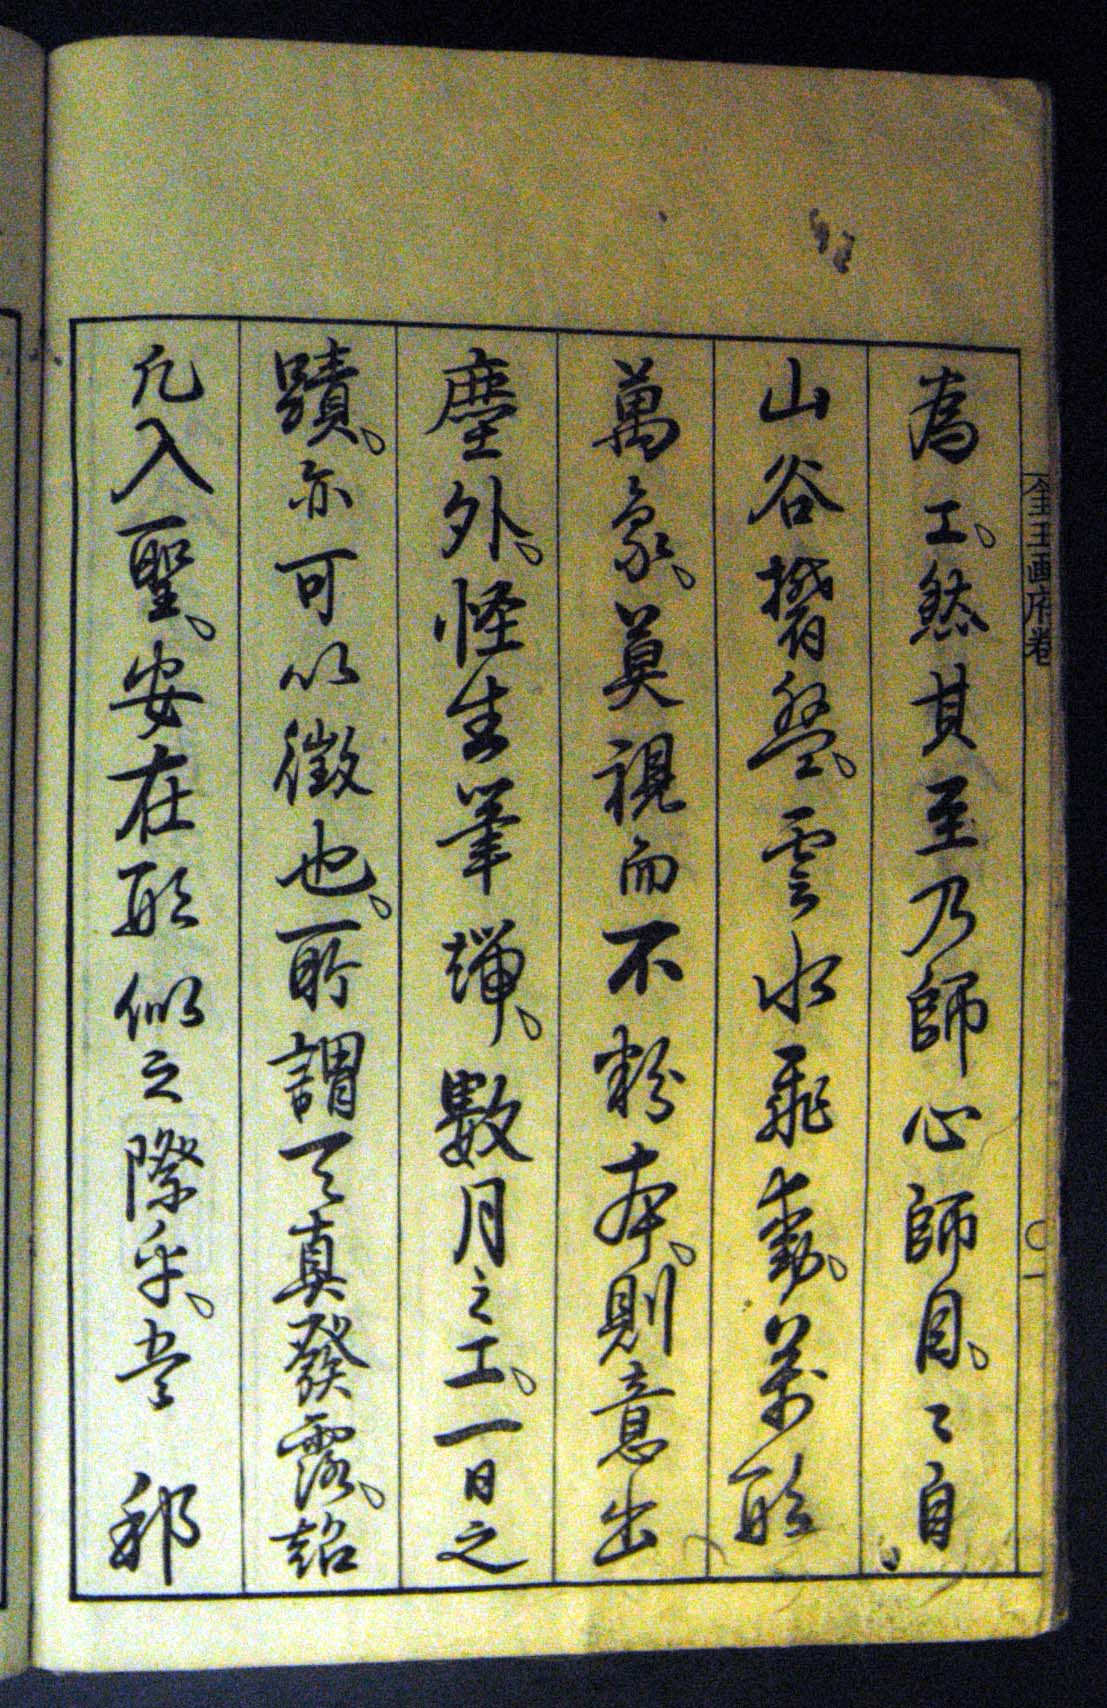 為工、然其至乃師心師目、〻自
山谷欝盤、雲水飛動、萬形
萬象、莫視而不粉本、則意出
塵外、怪生筆端、數月之工、一日之
蹟、亦可以徵也、所謂天真發露、超
凢入聖、安在形似之際乎、吾邦
全玉画府卷
〇一